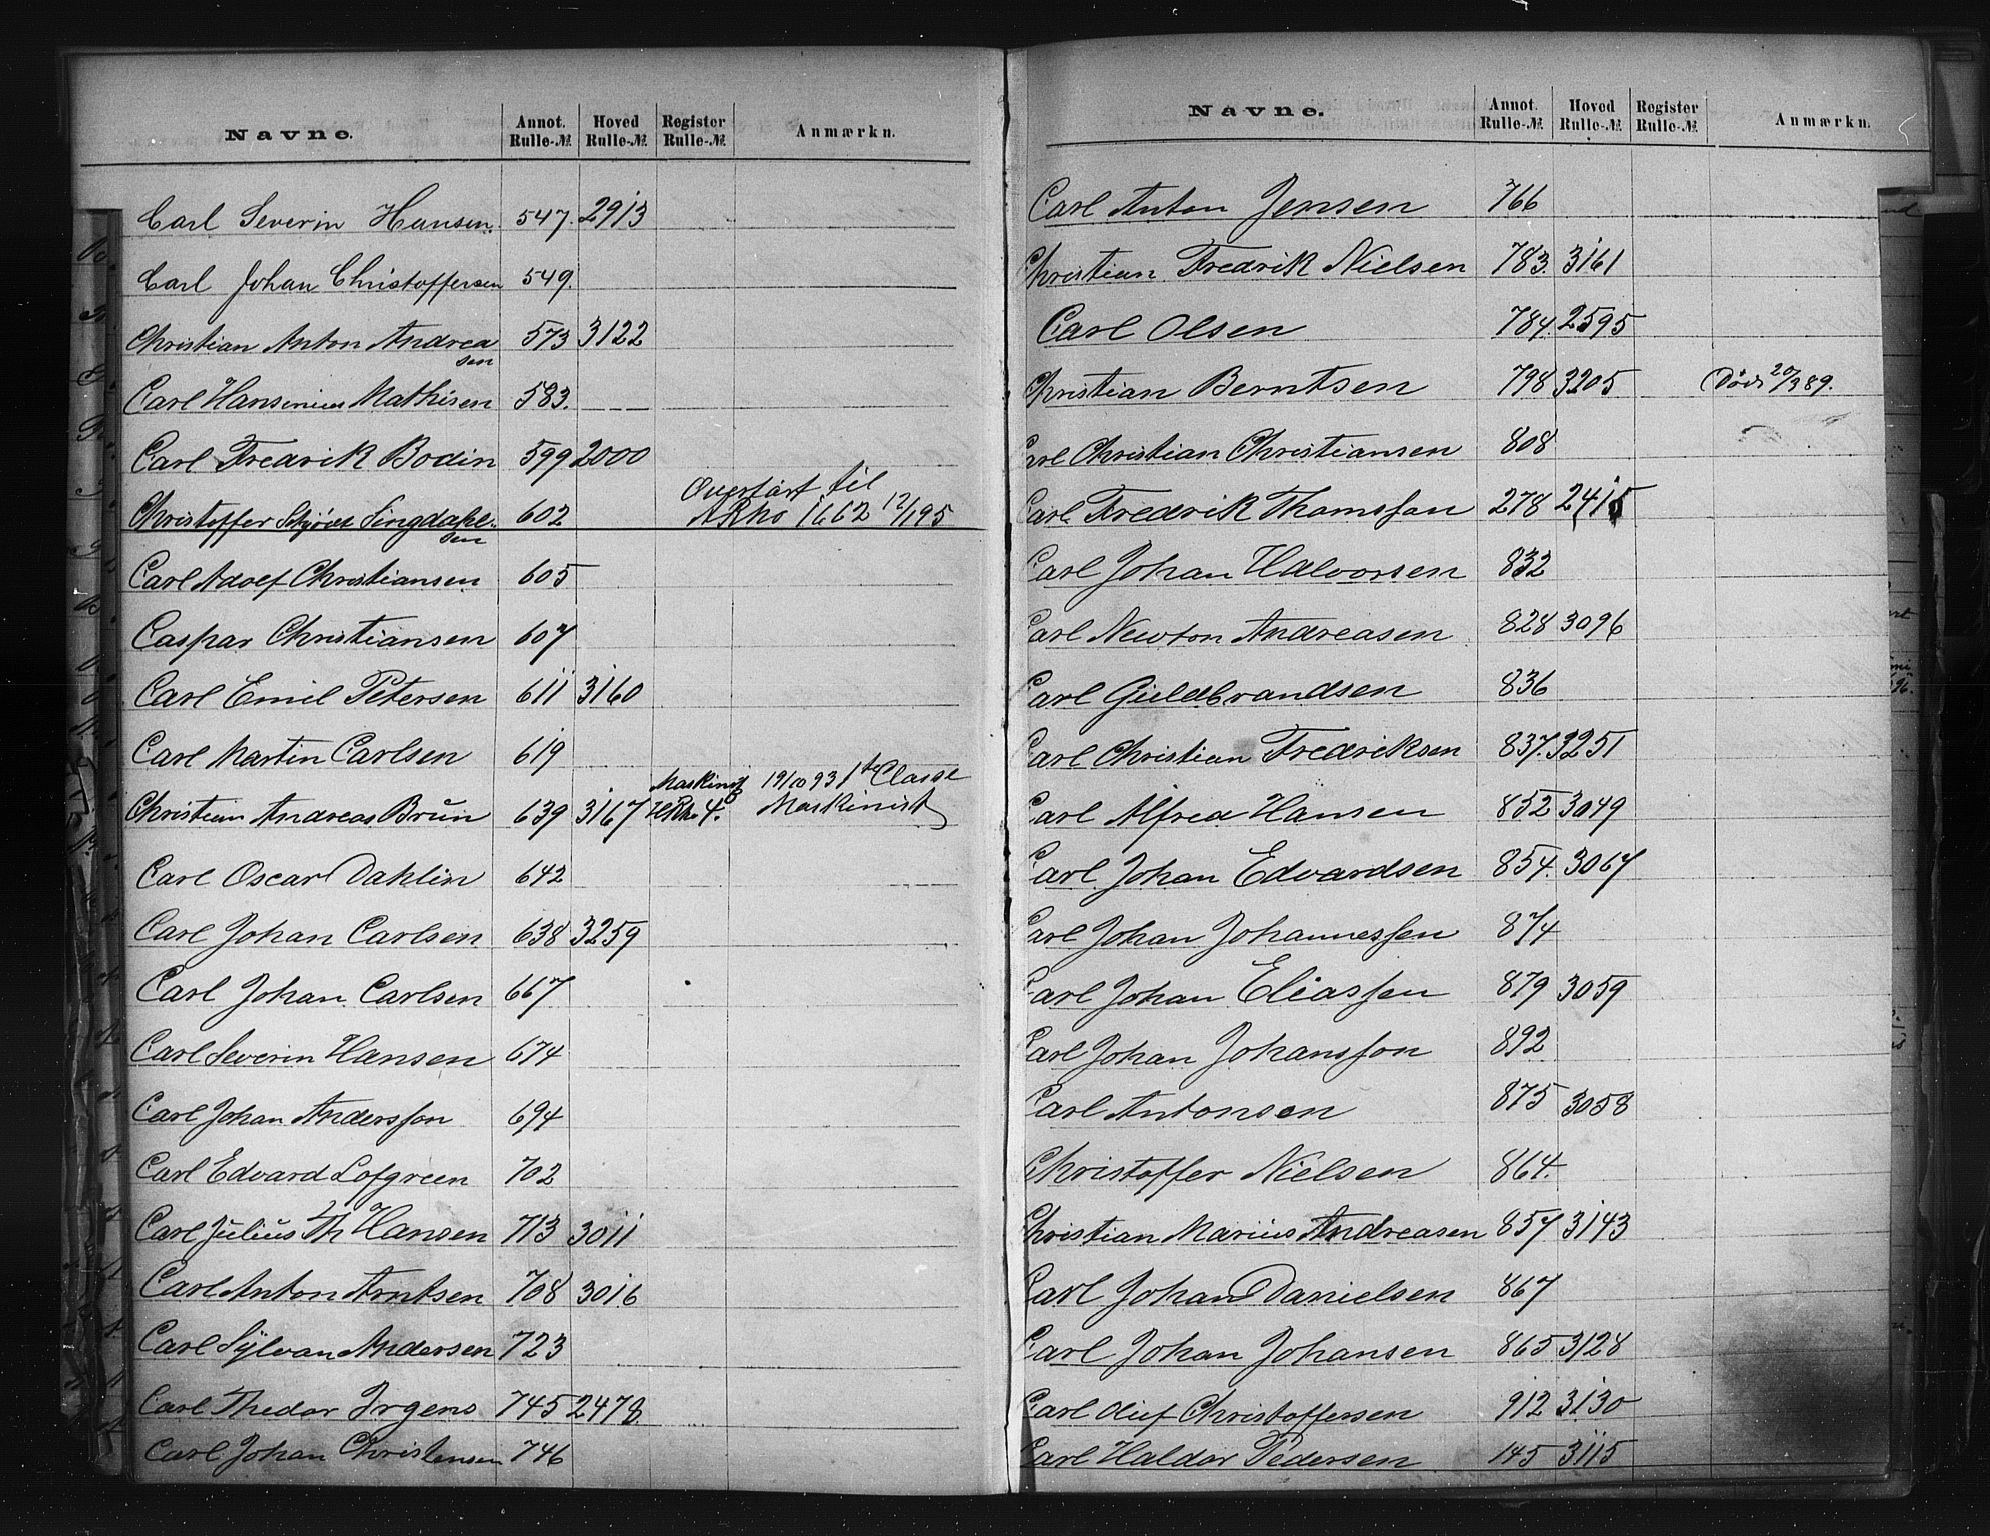 Navne. Annot. Rulle-№ Hoved Rulle-№ Register Rulle-№ Anmærkn.
Carl Severin Hansen. 547. 2913
Carl Johan Christoffersen 549.
Christian Anton Andrea 573 3122
sen
Carl Hansenius Mathisen 583.
Carl Fredrik Bodin 599 2000
Overført til
Christoffer Singdahl- 602 1662 12/1 95
sen
Carl Adolf Christiansen 605
Caspar Christiansen 607
Carl Emil Petersen 611 3160
Carl Martin Carlsen 619
Maskinist 19/10 93 1ste Classe
Christian Andreas Brun 639 3167 4. Maskinist
Carl Oscar Dahlin 642
Carl Johan Carlsen 638 3259
Carl Johan Carlsen 667
Carl Severin Hansen 674
Carl Johan Andersson 694
Carl Edvard Lofgreen 702
Carl Julius Th Hansen 713 3011
Carl Anton Arntsen 708 3016
Carl Sylvan Andersen 723
Carl Thedor Jrgens 745 2478
Carl Johan Christensen 746
Navne. Annot. Rulle-№ Hoved Rulle-№ Register Rulle-№ Anmærkn.
Carl Anton Jensen 766
Christian Fredrik Nielsen 783. 3161
Carl Olsen 784. 2595
Christian Berntsen 798 3205 Död 20/3 89.
Carl Christian Christiansen 808
Carl Fredrik Thomsson 278 2415
Carl Johan Halvorsen 832
Carl Newton Andreasen 828 3096
Carl Guldbrandsen 836
Carl Christian Fredriksen 837. 3251
Carl Alfred Hansen 852 3049
Carl Johan Edvardsen 854. 3067
Carl Johan Johannessen 874
Carl Johan Eliassen 879 3059
Carl Johan Johansson 892
Carl Antonsen 875 3058
Christoffer Nielsen 864.
Christian Marius Andreasen 857 3143
Carl Johan Danielsen 867
Carl Johan Johansen 865 3128
Carl Christoffersen 912 3130
Carl Haldor Pedersen 145 3115